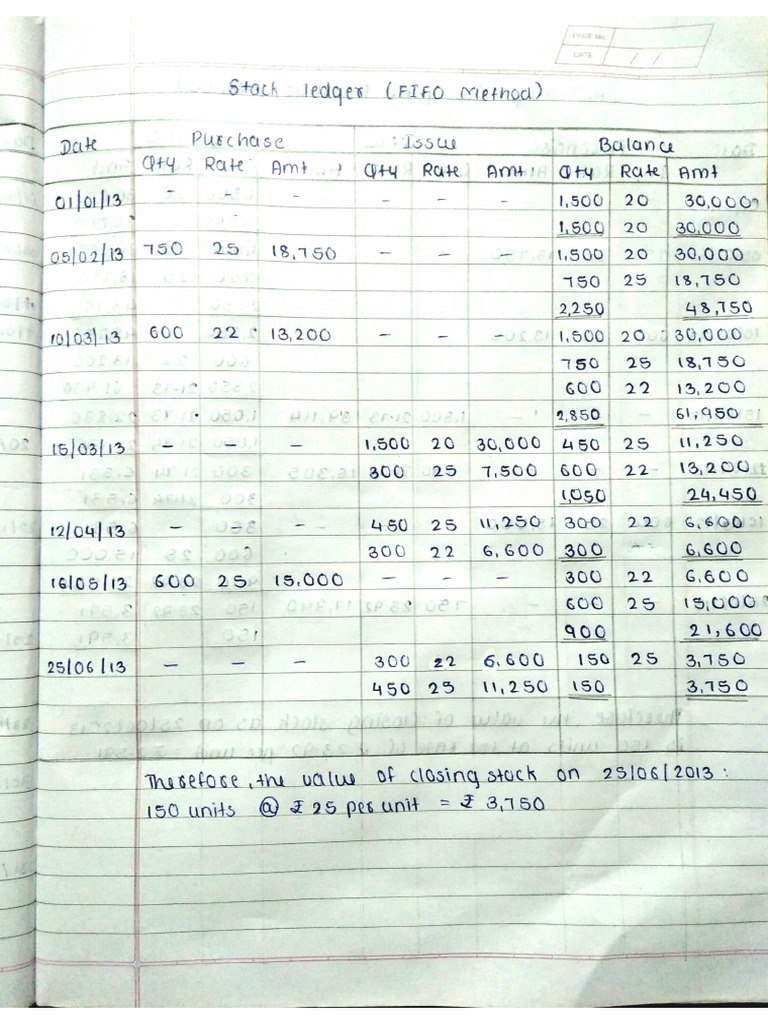 PAGE No.
DATE / /
Stock ledger (FIFO Method)
Date Purchase Issue Balance
Qty Rate Amt Qty Rate Amt Qty Rate Amt
01/01/13 - - - - - - 1,500 20 30,000
1,500 20 30,000
05/02/13 750 25 18,750 - - - 1,500 20 30,000
750 25 18,750
2,250 48,750
10/03/13 600 22 13,200 - - - 1,500 20 30,000
750 25 18,750
600 22 13,200
2,850 - 61,950
15/03/13 - - - 1,500 20 30,000 450 25 11,250
300 25 7,500 600 22 13,200
1,050 24,450
12/04/13 - - - 450 25 11,250 300 22 6,600
300 22 6,600 300 6,600
16/05/13 600 25 15.000 - - - 300 22 6.600
600 25 15,000
900 21,600
25/06/13 - - - 300 22 6.600 150 25 3,750
450 25 11,250 150 3,750
Therefore, the value of closing stock on 25/06/2013:
150 units @ ₹ 25 per unit = ₹ 3,750